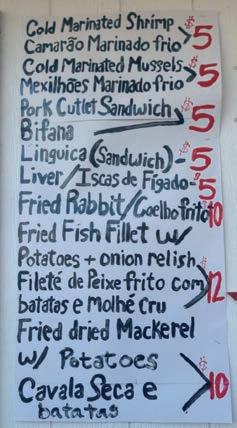 Cold Marinated Shrimp
Camarão Marinado frio $5
Cold Marinated Mussels
Mexilhões Marinado frio $5
Pork Cutlet Sandwich
Bifana $5
Linguica (Sandwich) - $5
Liver/Iscas de Fígado - $5
Fried Rabbit/Coelho frito $10
Fried Fish Fillet w/
Potatoes + onion relish
Fileté de Peixe frito com $12
batatas e Molhé Cru
Fried dried Mackerel
w/ Potatoes
Cavala Seca e $10
batatas